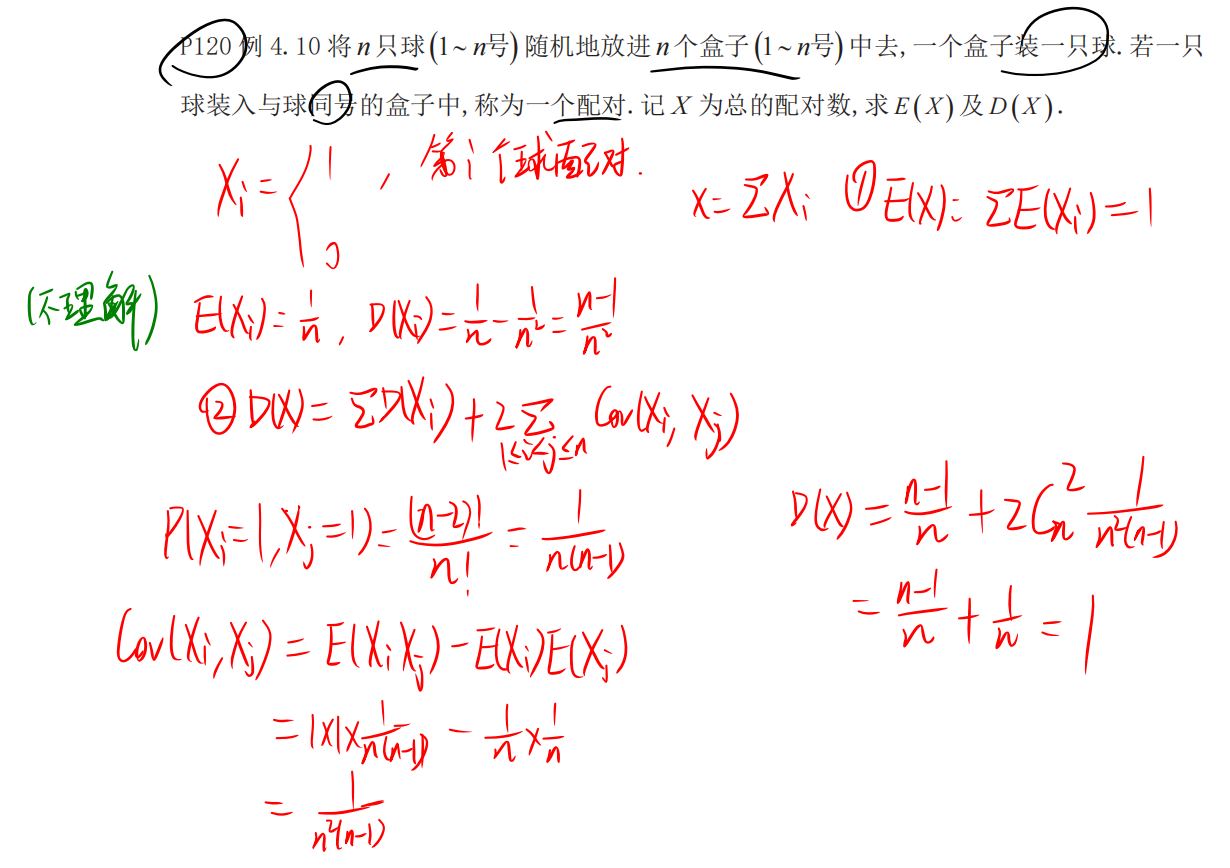 P120 例 4.10 将 n 只球 (1~n号) 随机地放进 n 个盒子 (1~n号) 中去, 一个盒子装一只球. 若一只
球装入与球同号的盒子中, 称为一个配对. 记 X 为总的配对数, 求 E(X) 及 D(X).
Xi = { 1 , 第 i 个球配对.
0
X = ΣXi ① E(X) = ΣE(Xi) = 1
(不理解) E(Xi) = 1/n , D(Xi) = 1/n - 1/n² = (n-1)/n²
② D(X) = ΣD(Xi) + 2 Σ 1≤i<j≤n Cov(Xi, Xj)
P(Xi=1, Xj=1) = (n-2)!/n! = 1/(n(n-1))
Cov(Xi, Xj) = E(XiXj) - E(Xi)E(Xj)
= 1×1× 1/(n(n-1)) - 1/n × 1/n
= 1/(n²(n-1))
D(X) = (n-1)/n + 2C_n^2 1/(n²(n-1))
= (n-1)/n + 1/n = 1